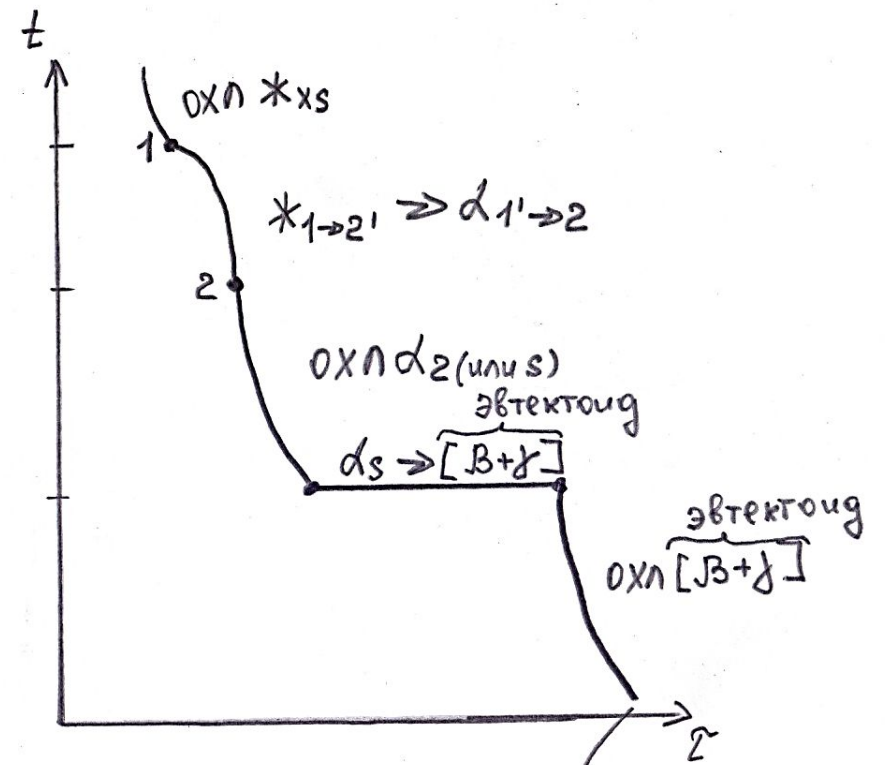 t
охл ж xs
1
ж 1→2' → α 1'→2
2
охл α 2 (или s)
эвтектоид
α s → [β+γ]
эвтектоид
охл [β+γ]
τ